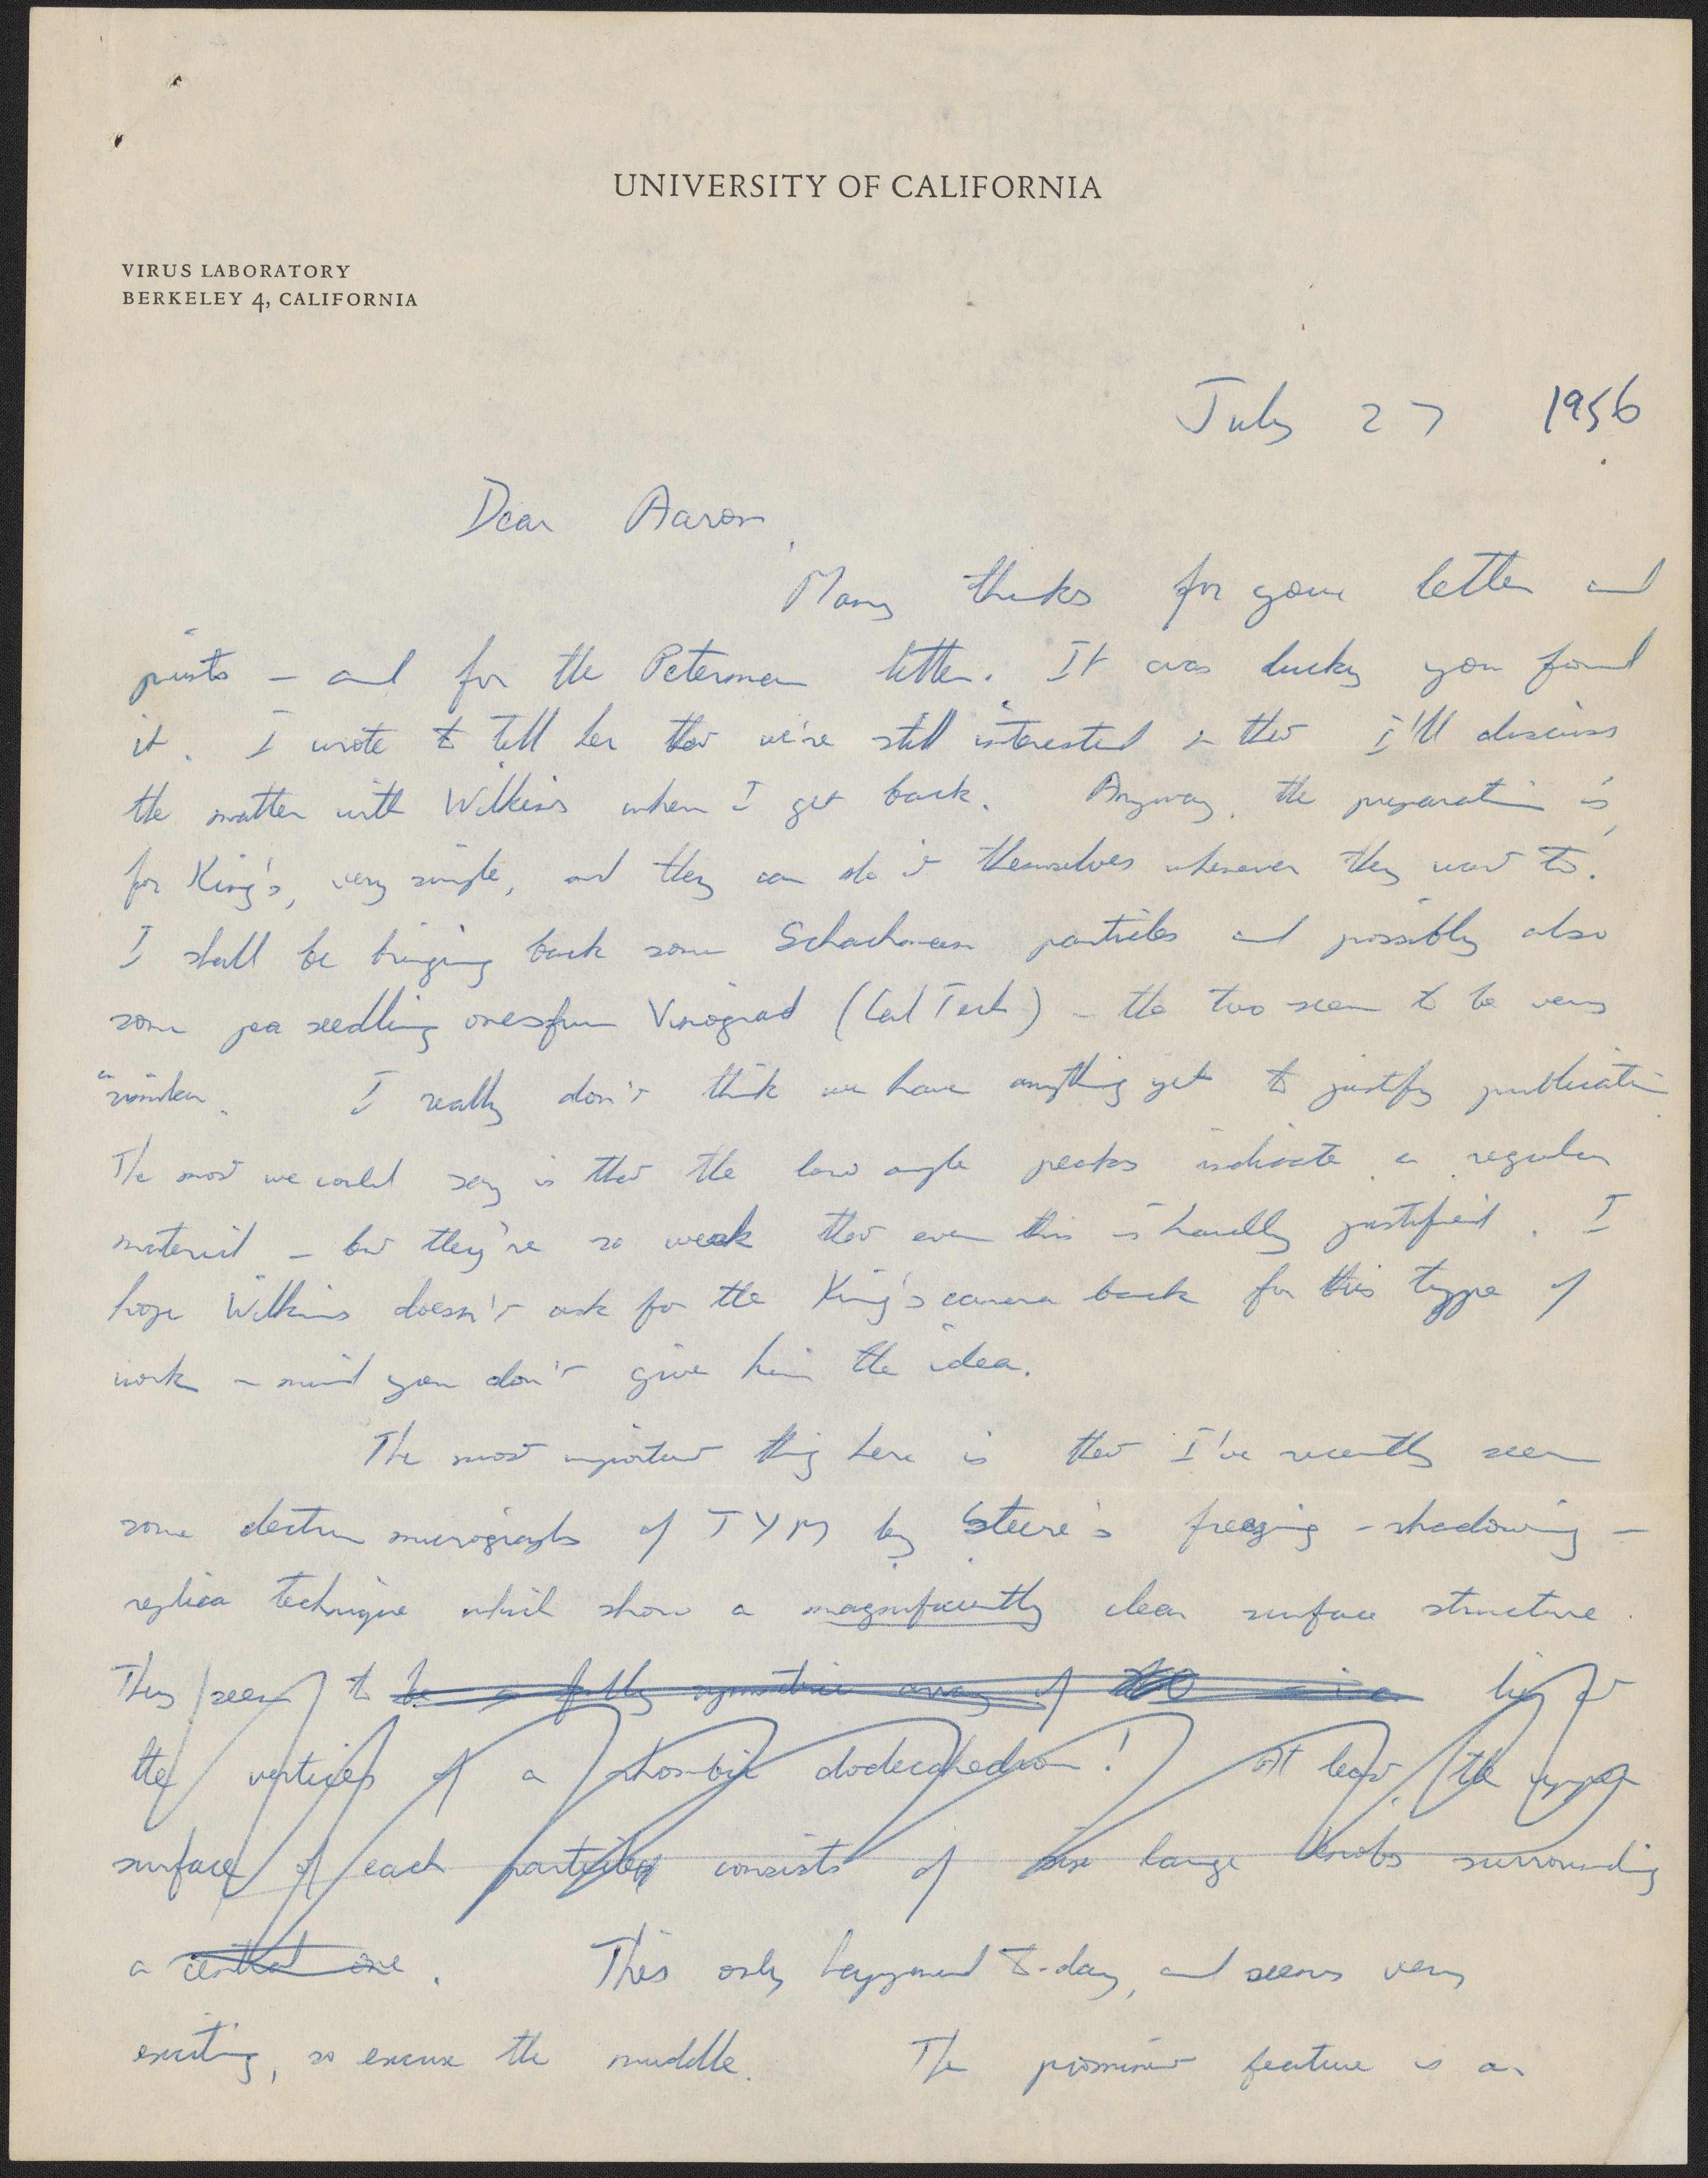 UNIVERSITY OF CALIFORNIA
VIRUS LABORATORY
BERKELEY 4, CALIFORNIA
July 27 1956
Dear Aaron,
Many thanks for your letter and
prints – and for the Peterman letter. It was lucky you found
it. I wrote to tell her that we're still interested & that I'll discuss
the matter with Wilkins when I get back. Anyway, the preparation is,
for King's, very simple, and they can do it themselves whenever they want to.
I shall be bringing back some Schachman particles and possibly also
some pea seedling ones from Vinograd (Cal Tech) – the two seem to be very
similar. I really don't think we have anything yet to justify publication.
The most we could say is that the low angle peaks indicate a regular
material – but they're so weak that even this is hardly justified. I
hope Wilkins doesn't ask for the King's camera back for this type of
work – mind you don't give him the idea.
The most important thing here is that I've recently seen
some electron micrographs of TYM by Steere's freezing-shadowing-
replica technique which show a magnificently clear surface structure.
They seem to be a fully symmetric array of lie at
the vertices of a rhombic dodecahedron! At least, the upper
surface of each particle consists of six large knobs surrounding
a central one. This only happened to-day, and seems very
exciting, so excuse the muddle. The prominent feature is an